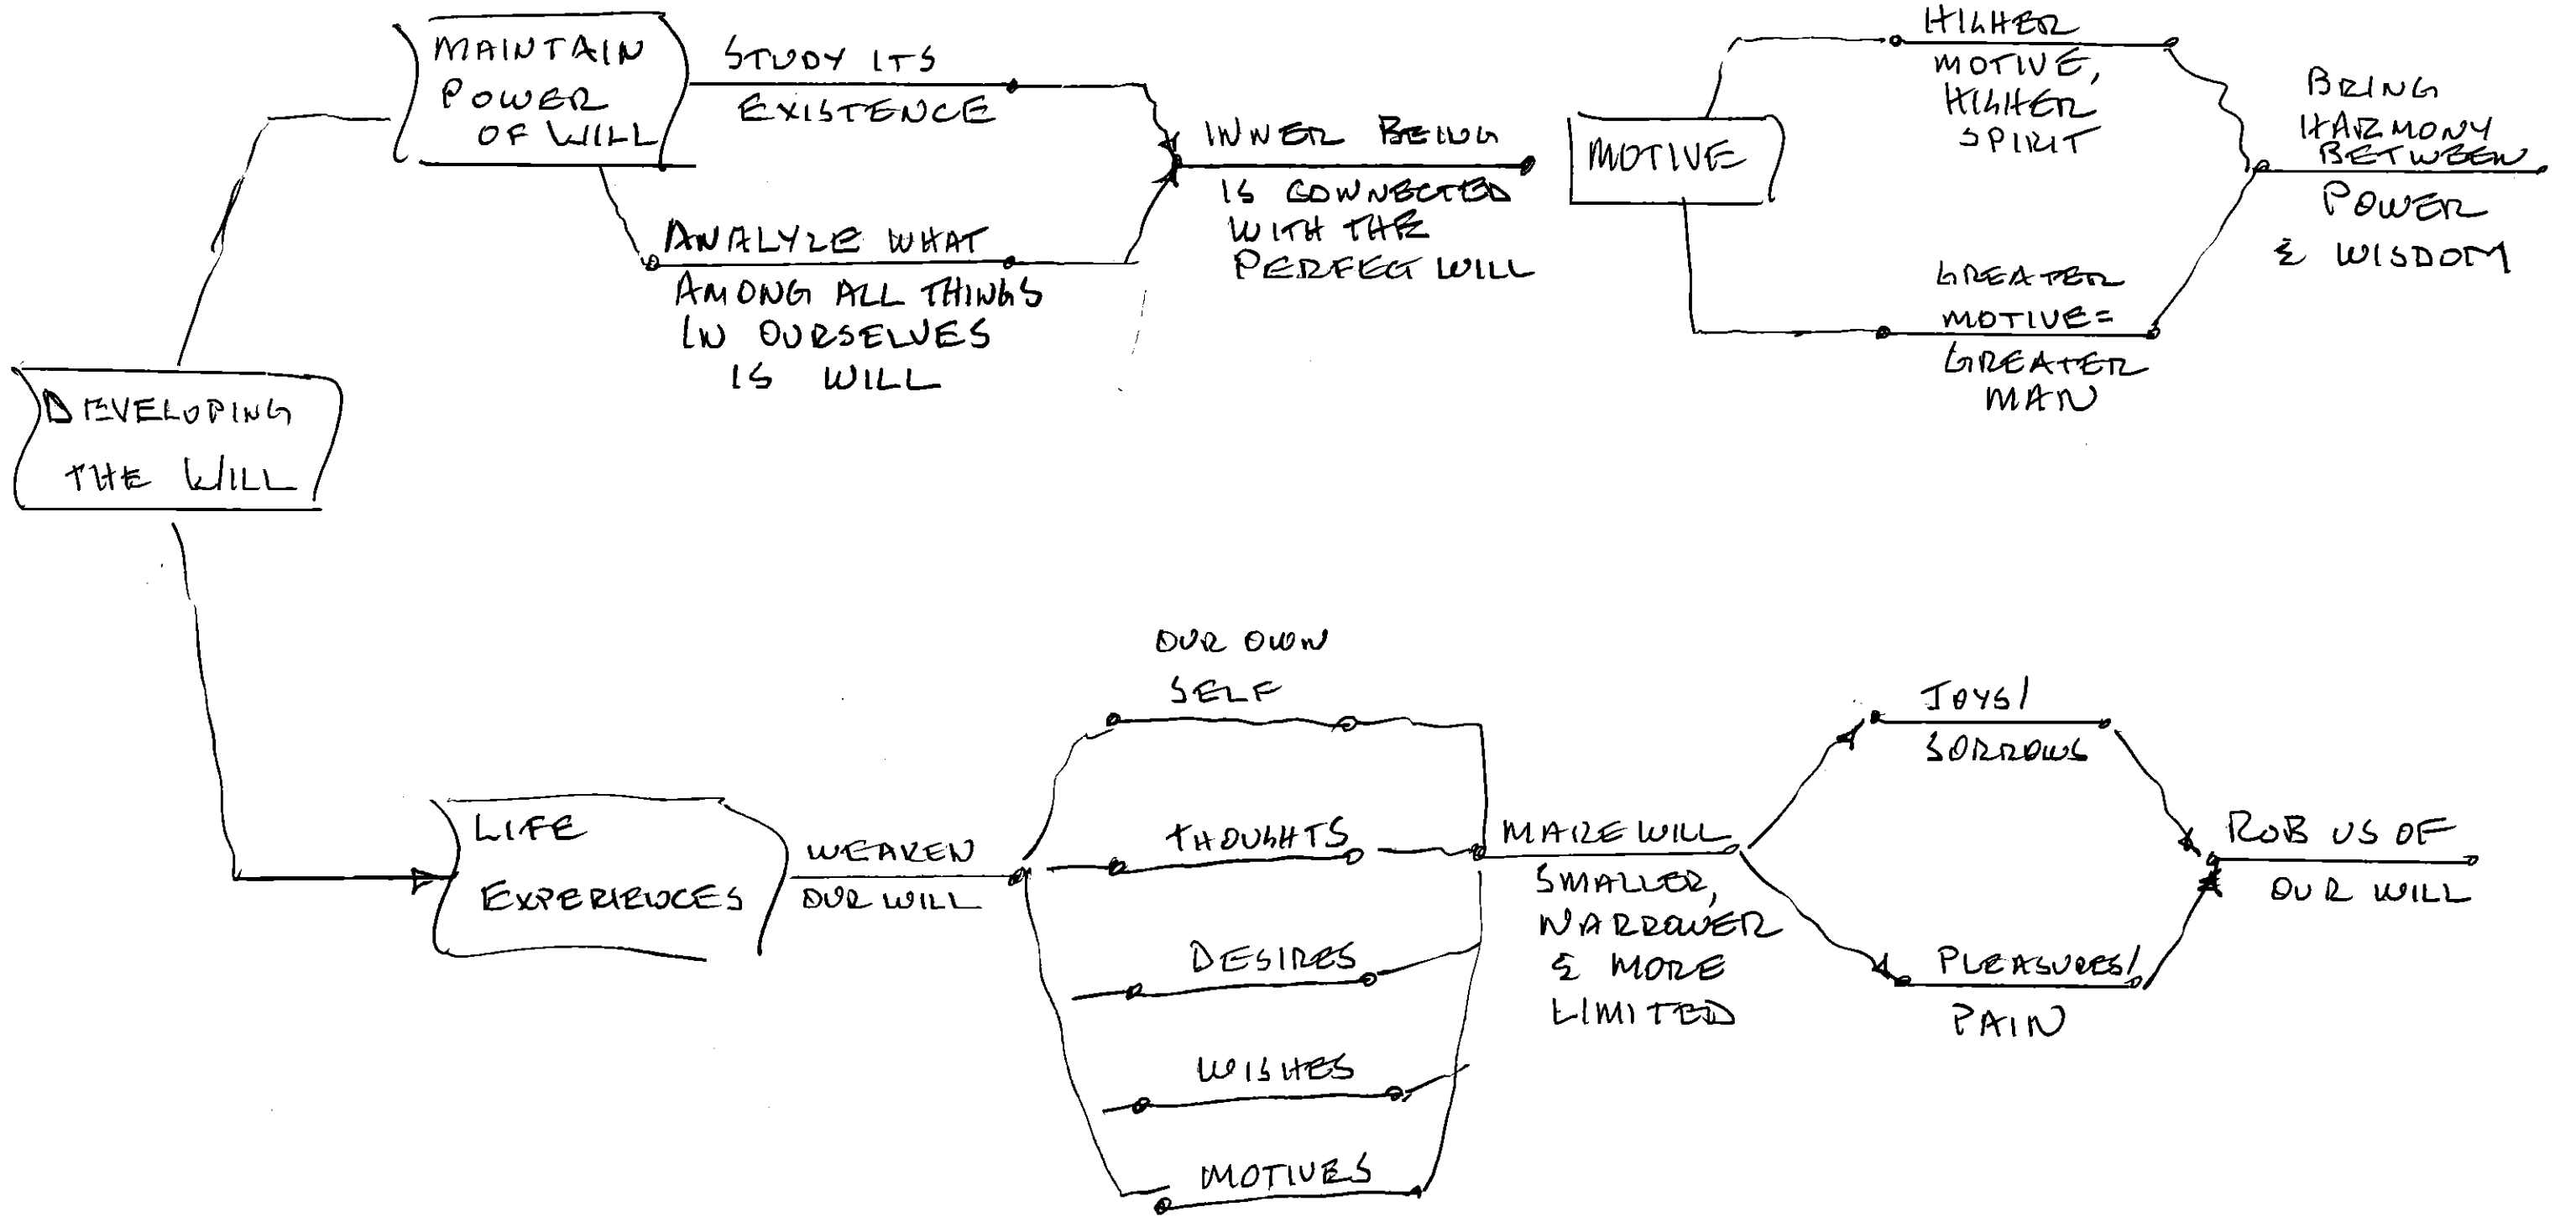 MAINTAIN
POWER
OF WILL
STUDY ITS
EXISTENCE
ANALYZE WHAT
AMONG ALL THINGS
IN OURSELVES
IS WILL
INNER BEING
IS CONNECTED
WITH THE
PERFECT WILL
MOTIVE
HIGHER
MOTIVE,
HIGHER
SPIRIT
GREATER
MOTIVE =
GREATER
MAN
BRING
HARMONY
BETWEEN
POWER
& WISDOM
DEVELOPING
THE WILL
LIFE
EXPERIENCES
WEAKEN
OUR WILL
OUR OWN
SELF
THOUGHTS
DESIRES
WISHES
MOTIVES
MAKE WILL
SMALLER,
NARROWER
& MORE
LIMITED
JOYS/
SORROWS
PLEASURES/
PAIN
ROB US OF
OUR WILL